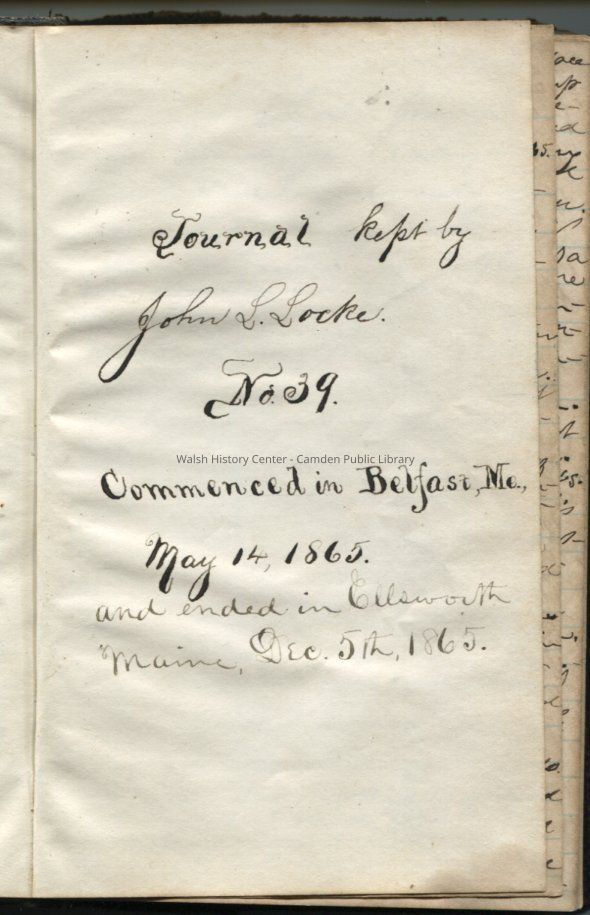 Journal kept by
John L. Locke.
No. 39.
Walsh History Center - Camden Public Library
Commenced in Belfast, Me.,
May 14, 1865.
and ended in Ellsworth
Maine, Dec. 5th, 1865.